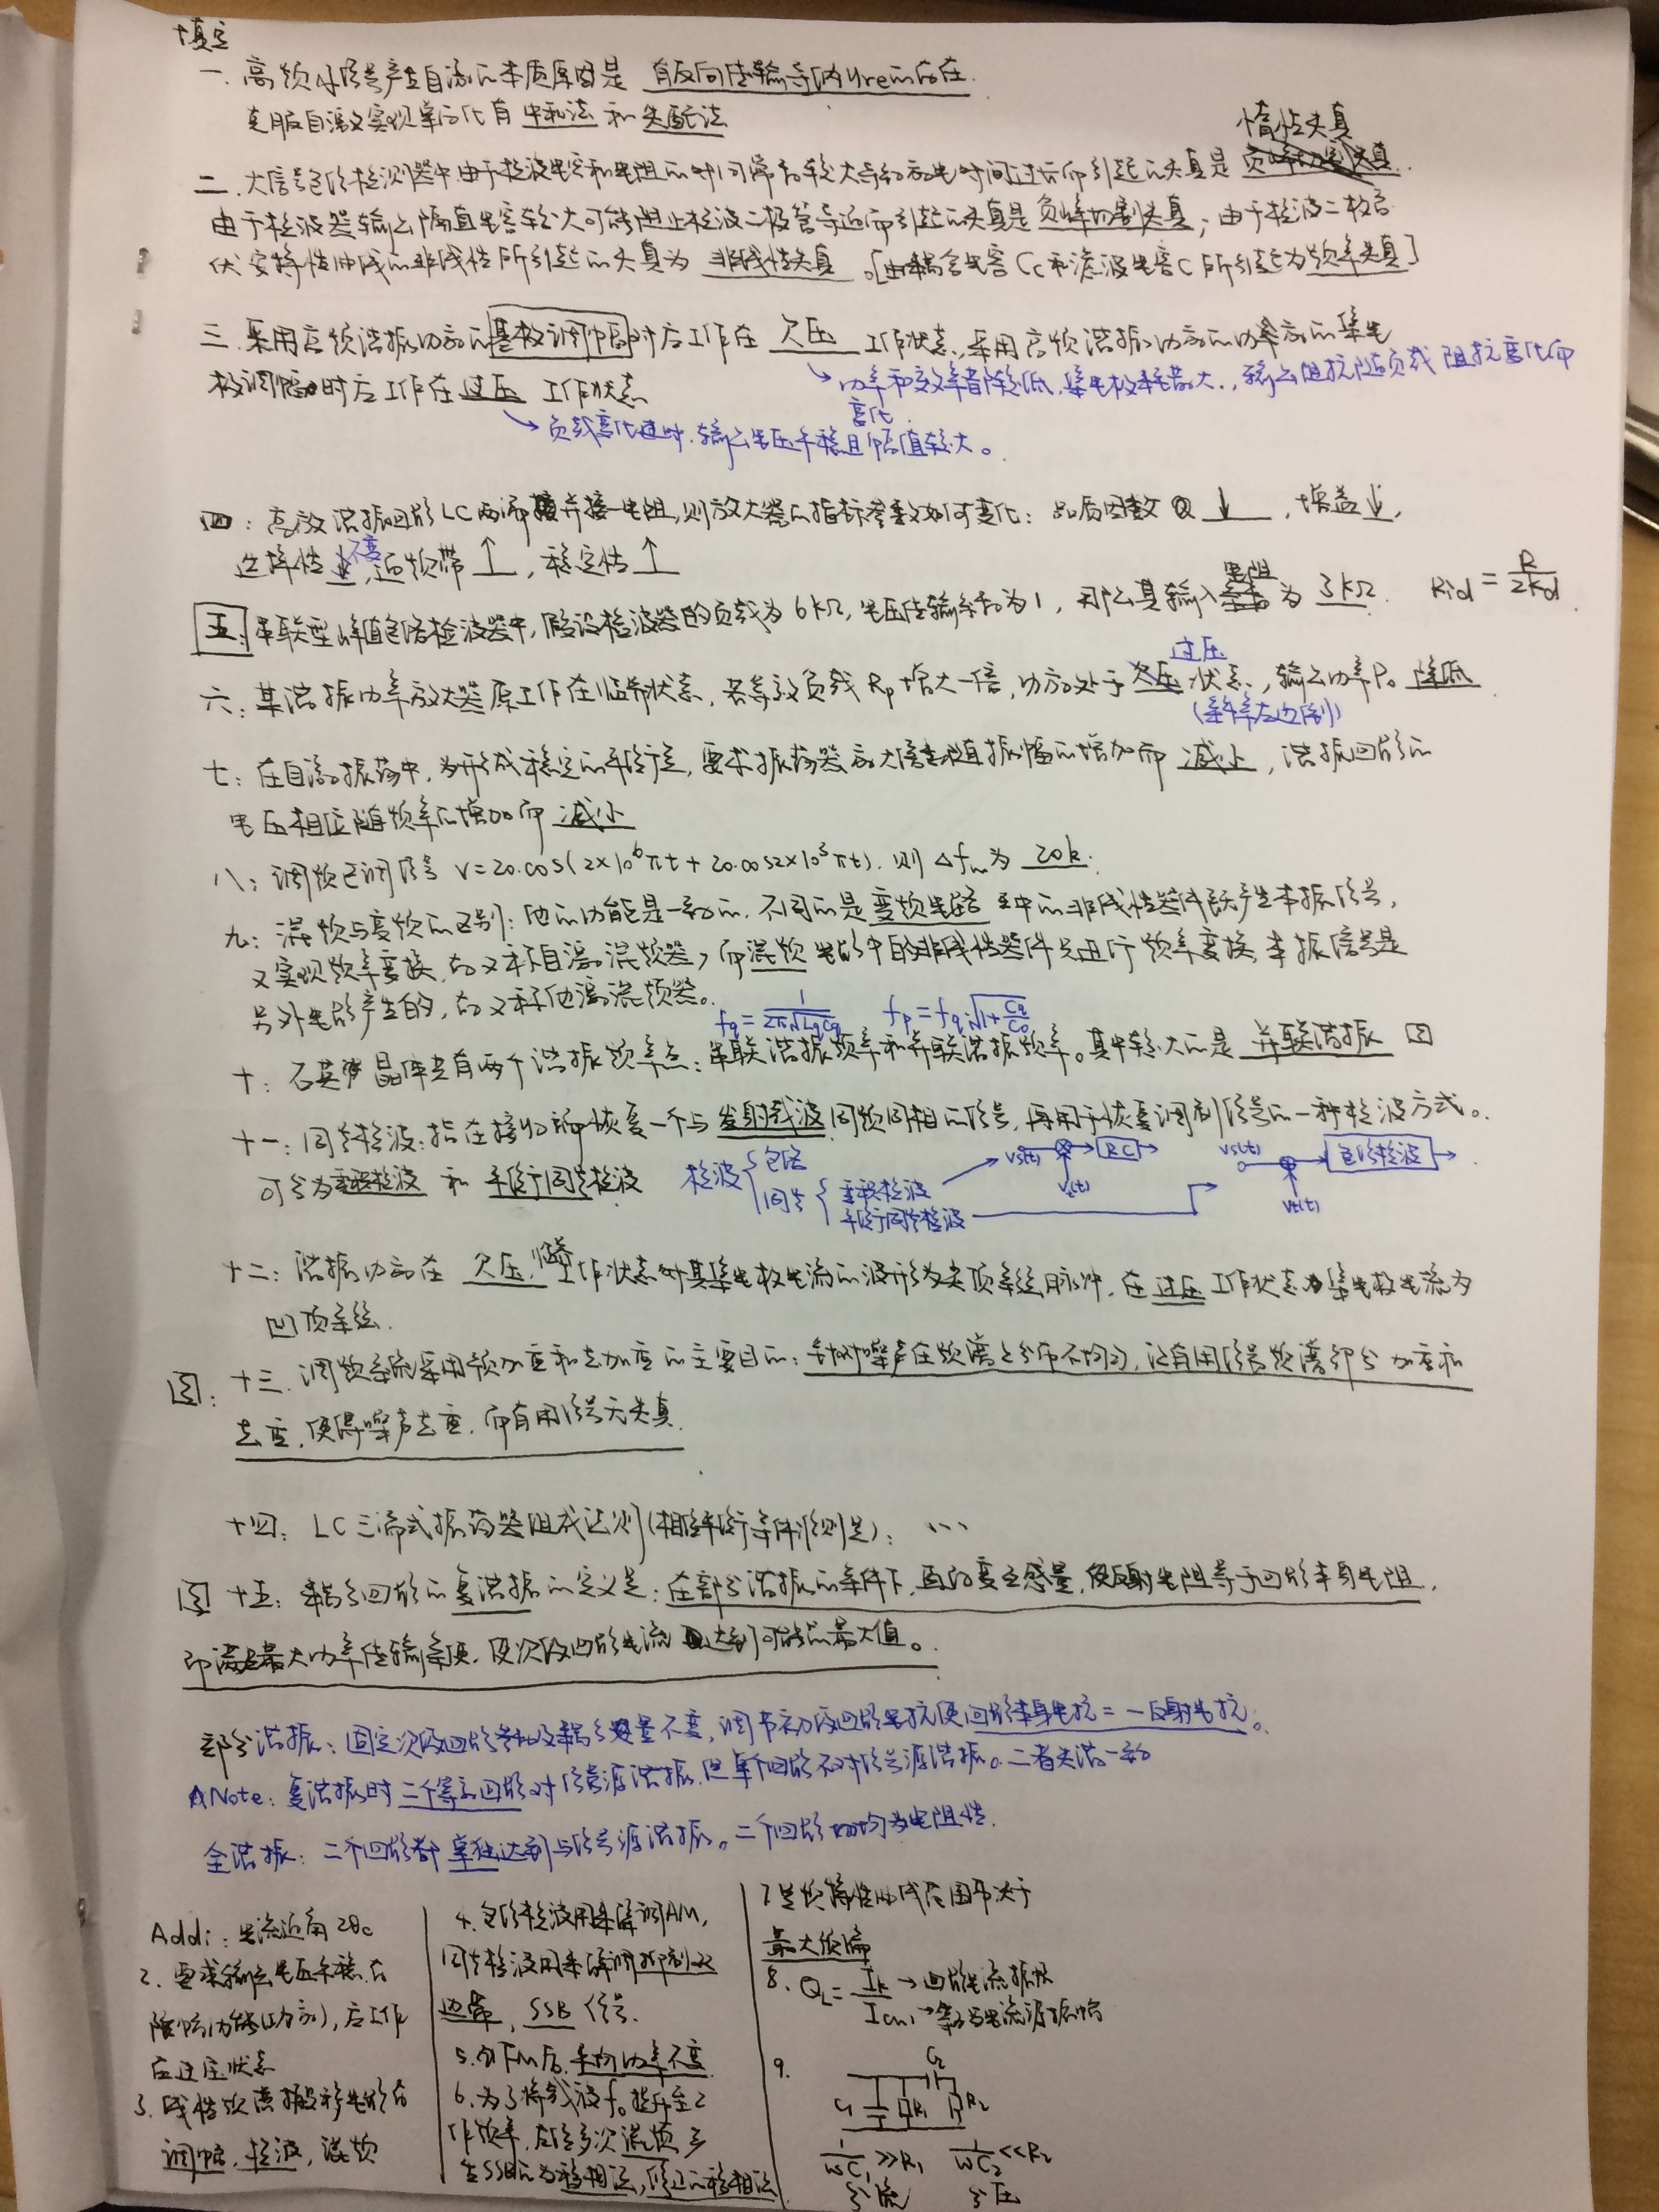 填空
一. 高频小信号产生自激的本质原因是 有反向传输导纳yre的存在.
克服自激实现单向化有 中和法 和 失配法
惰性失真
二. 大信号包络检测器中由于检波电容和电阻的时间常数较大导致放电时间过长而引起的失真是
由于检波器输出隔直电容较大可能阻止检波二极管导通而引起的失真是 负峰切割失真; 由于检波二极管
伏安特性曲线的非线性所引起的失真为 非线性失真。[由耦合电容Cc和滤波电容C所引起为频率失真]
三. 采用高频谐振功放的基极调幅时应工作在 欠压 工作状态, 采用高频谐振功放的功率放的集电
极调幅时应工作在过压 工作状态
→功率和效率都降低, 集电极耗散大, 输出阻抗随负载阻抗变化而变化
→负载变化时, 输出电压平稳且幅值较大。
四: 高放谐振回路LC两端并接一电阻,则放大器的指标参数如何变化: 品质因数Q ↓, 增益↓,
选择性 不变, 通频带↑, 稳定性↑
五. 串联型峰值包络检波器中, 假设检波器的负载为6kΩ, 电压传输系数为1, 那么其输入电阻为 3kΩ. Rid = R/2Kd
六: 某谐振功率放大器原工作在临界状态, 若等效负载Rp增大一倍, 功放处于 过压 状态, 输出功率Po 降低
七: 在自激振荡中, 为形成稳定的平衡, 要求振荡器放大倍数随振幅的增加而 减小, 谐振回路的
电压相位随频率的增加而 减小
八: 调频已调信号 v=20·cos(2×10⁶πt + 20·cos2×10³πt). 则 Δfm为 20k.
九: 混频与变频的区别: 他的功能是一致的. 不同的是变频电路 其中的非线性器件既产生本振信号,
又实现频率变换, 故又称自激混频器, 而混频电路中的非线性器件只进行频率变换, 本振信号是
另外电路产生的, 故又称他激混频器。
fq = 1/2π√LqCq fp = fq√1+Cq/Co
十: 石英晶体共有两个谐振频率点: 串联谐振频率和并联谐振频率。其中较大的是 并联谐振
十一: 同步检波: 指在接收端恢复一个与发射载波同频同相的信号, 再用于恢复调制信号的一种检波方式。
可分为乘积检波 和 平衡同步检波
检波 { 包络 同步 { 乘积检波 平衡同步检波
vs(t) RC vs(t) 包络检波
十二: 谐振功放在 欠压, 临界 工作状态时其集电极电流的波形为尖顶余弦脉冲, 在过压工作状态为集电极电流为
凹顶余弦.
十三. 调频系统采用预加重和去加重的主要目的: 针对噪声在频谱上分布不均匀, 让有用信号频谱部分加重和
去重, 使得噪声去重, 而有用信号无失真.
十四: LC三端式振荡器组成法则(相位平衡条件准则是): …
十五: 耦合回路的复谐振的定义是: 在部分谐振的条件下, 再改变互感量, 使反射电阻等于回路本身电阻,
即满足最大功率传输条件, 使次级回路电流达到可能的最大值。
部分谐振: 固定次级回路参数及耦合量不变, 调节初级回路电抗使回路本身电抗=-反射电抗。
Note: 复谐振时二个等效回路对信号源谐振, 但单个回路不对信号源谐振。二者失谐一致
全谐振: 二个回路都单独达到与信号源谐振。二个回路均为电阻性.
Addi: 电流通角 2θc
2. 要求输出电压平稳在
限幅功能(功放), 应工作
在过压状态
3. 线性频谱搬移电路有
调幅, 检波, 混频
4. 包络检波用来解调AM,
同步检波用来解调抑制双
边带, SSB信号.
5. 调FM后, 平均功率不变
6. 为了将载波f₀提升至工
作频率, 应经多次混频
生SSB的为移相法, 修正的移相法
7. 鉴频特性曲线范围取决于
最大频偏
8. QL = Ik/Icm1 →回路电流振幅 →等效电流源振幅
9. C2
C1 R1 R2
1/ωC1 >>R1 1/ωC2 <<R2
分流 分压